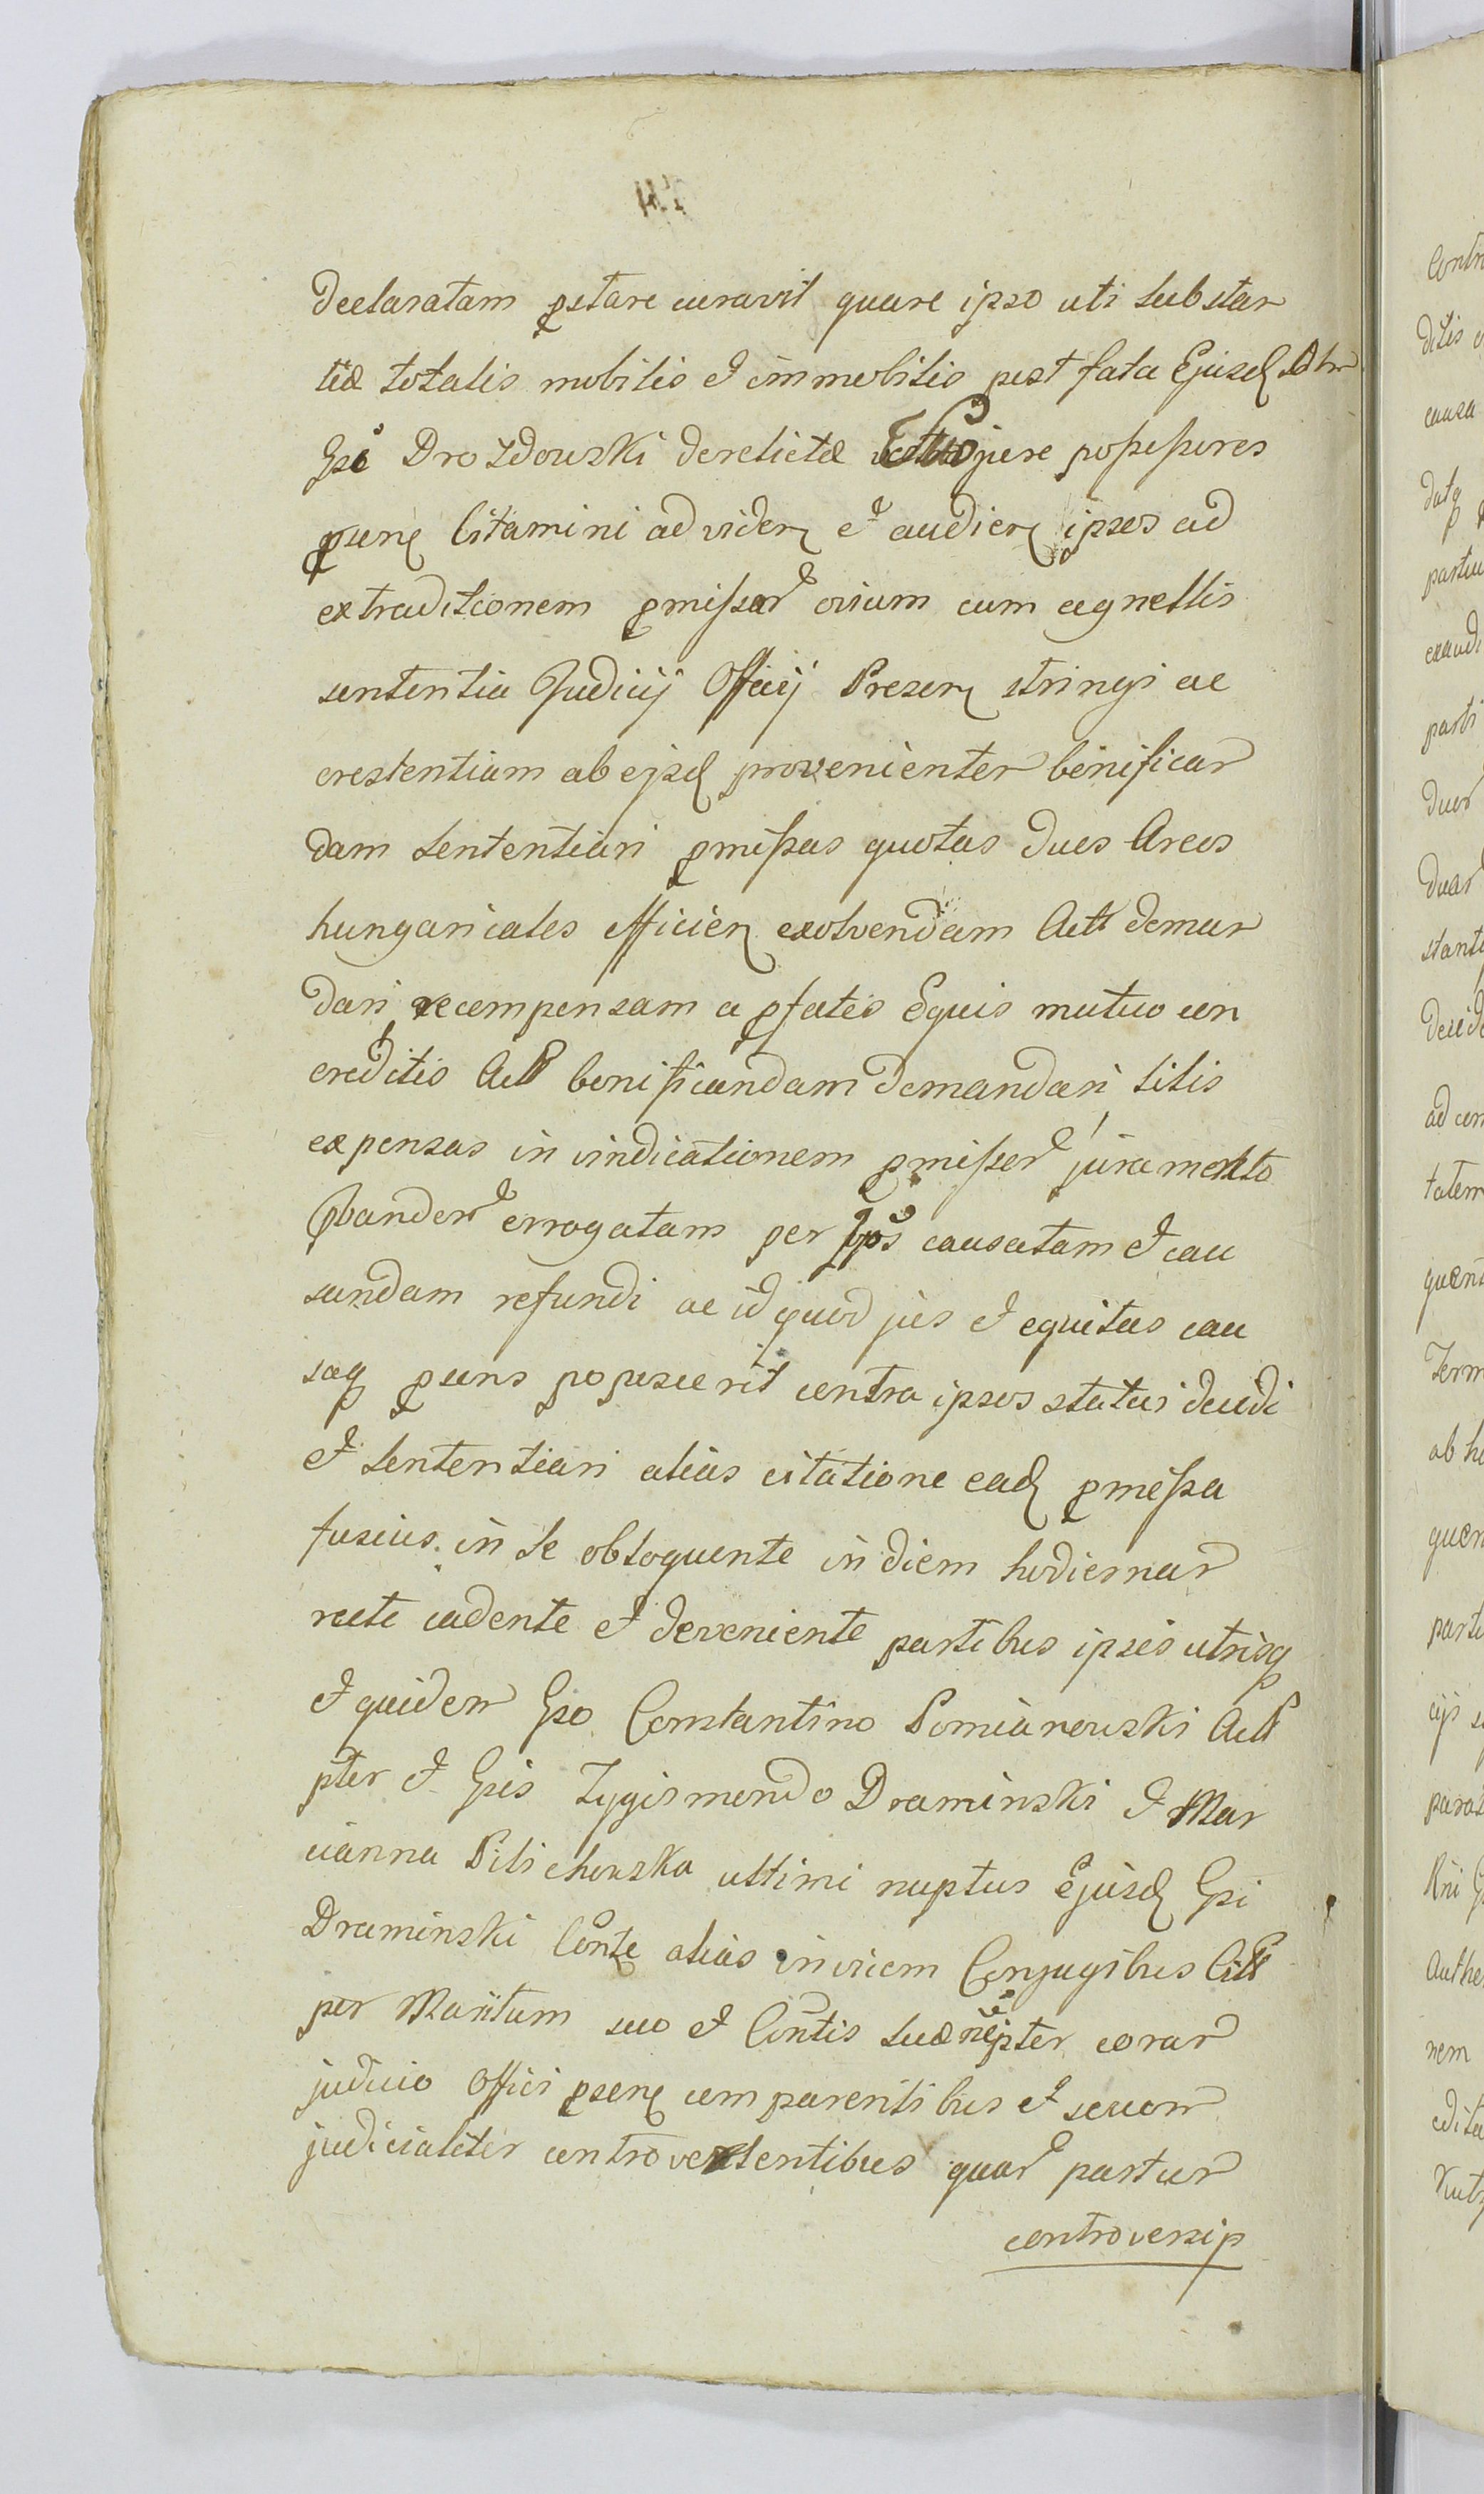 declaratam pstare curavit quare ipso uti substan
tiæ totalis mobilis et immobilis post fata Ejusd olim
Gsi Drozdowski derelictæ jure possessores
psenq Citamini ad viden et audien ipsos ad
extraditionem pmissar ovium cum agnellis
sententia Judicij Officij Presen stringi ac
crestentiam ab ejsd provenienter benifican
dam sententiari pmissas quotas duos Areos
hungaricales efficien exolvendam Actt deman
dari recompensam a pfatis Equis mutuo con
creditis Actt bonificandam demandari litis
expensas in vindicationem pmissor juramento
pbandam errogatam per Ipos causatam et cau
sandam refundi ac id quod jus et equitas cau
saq psens poposcerit contra ipsos statui decidi
et sententiari alias citatione ead pmissa
fusius in se obloquente in diem hodiernam
recte cadente et deveniente partibus ipsis utrisq
et quidem Gso Constantino Pomianowski Actt
pter et Gsis Zygismondo Draminski et Mar
cianna Pilichowska ultimi nuptus Ejusd Gsi
Draminski Conte alias invicem Conjugibus Citt
per Maritum suo et Contis suæ neipter coram
judicio Offici psenq comparentibus et secum
judicialiter controvertentibus quar partium
controversip